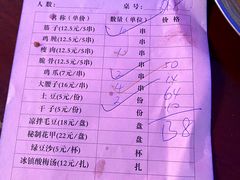 人数： 桌号：
名称（单价） 数量（单位） 价格
筋子(12.5元/5串) 串
鸡胗(12.5元/5串) 串
瘦肉(12.5元/5串) 串
脆骨(12.5元/5串) 串 50
鸡爪(7元/串) 2 串 14
大腰子(16元/串) 4 串 64
土豆(5元/份) 2 份 10
干子(5元/份) 份
凉拌毛豆(18元/盘) 盘 138
秘制花甲(22元/盘) 盘
绿豆沙(5元/杯) 杯
冰镇酸梅汤(12元/扎) 扎